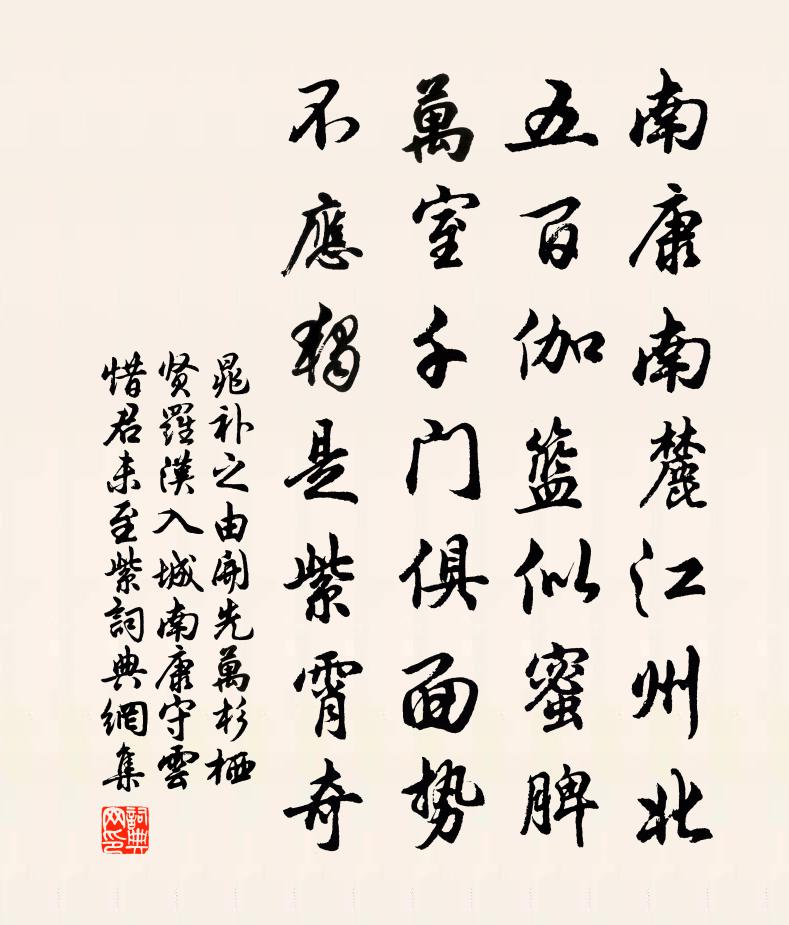 南康南麓江州北
五百伽籃似蜜脾
萬室千门俱面势
不應獨是紫霄奇
晁补之由開先萬杉栖
贤羅漢入城南康守雲
惜君未至紫詞典網集
詞典网印